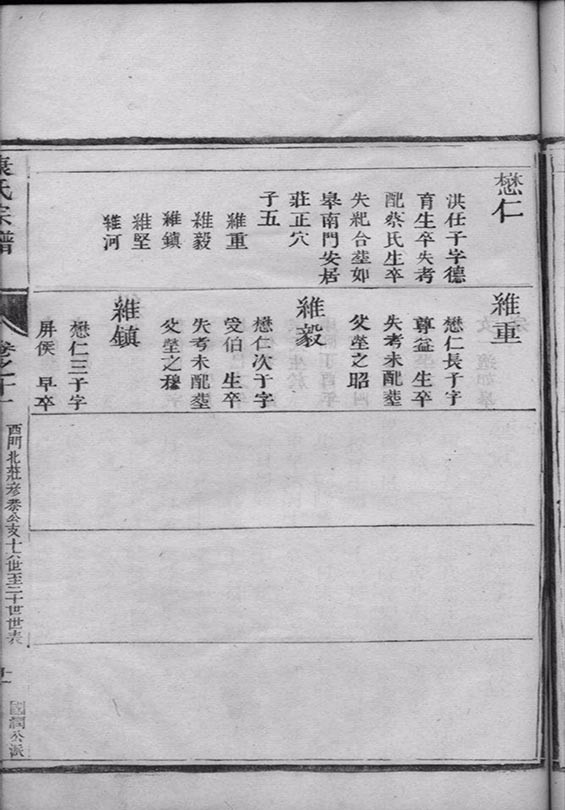 懋仁
洪任子字德
育生卒失考
配蔡氏生卒
失紀合塟如
皋南門安居
莊正穴
子五
維重
維毅
維鎮
維堅
維河
維重
懋仁長子字
尊益 生卒
失考未配塟
父塋之昭
維毅
懋仁次子字
愛伯 生卒
失考未配塟
父塋之穆
維鎮
懋仁三子字
屏侯 早卒
康氏宗譜
卷之十一
西門北莊彥泰公支十六世至二十世世表
國潤公派